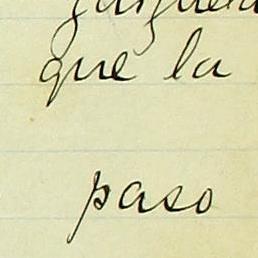 que la
paso